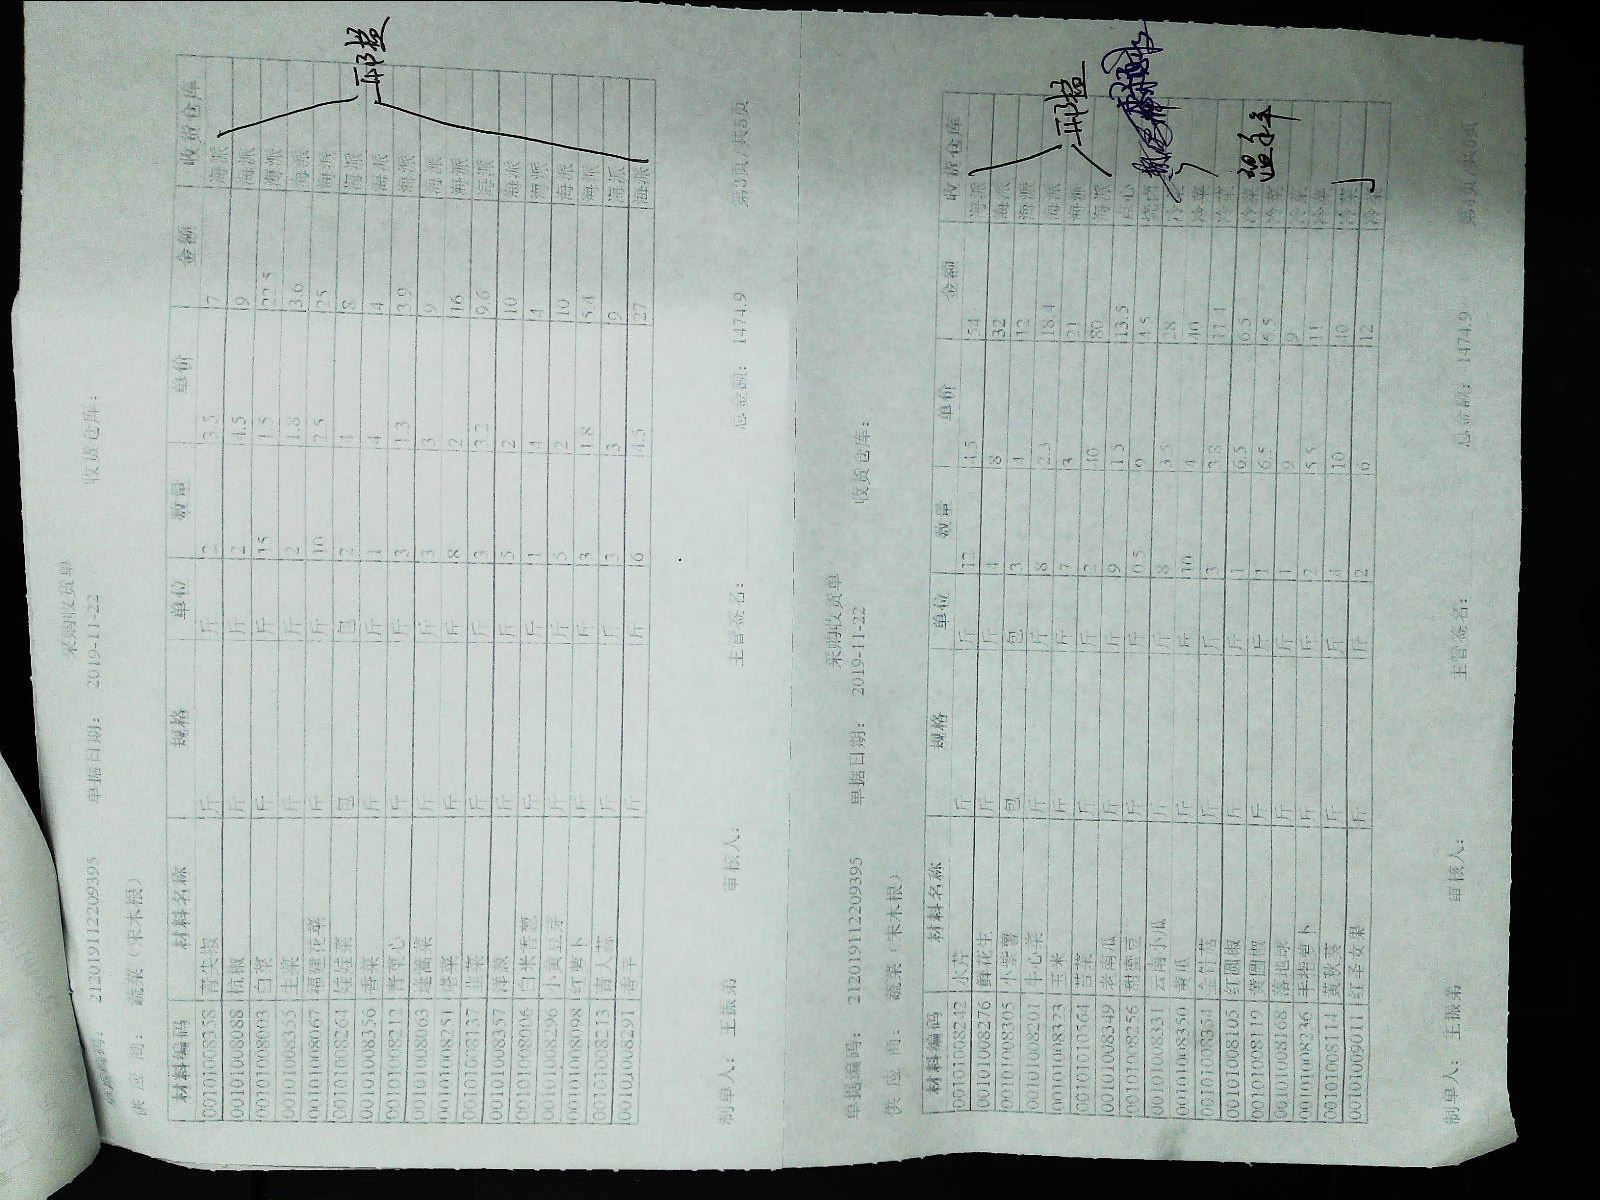 采购收货单
2120191122209395 单据日期： 2019-11-22 收货仓库：
供 应 商： 蔬菜（宋木根）
材料编码 材料名称 规格 单位 数量 单价 金额 收货仓库
00101008358 斤 斤 2 3.5 7 海派
00101008088 杭椒 斤 斤 2 4.5 9 海派
00101008003 白菜 斤 斤 15 1.5 22.5 海派
00101008355 生菜 斤 斤 2 1.8 3.6 海派
00101008067 福建花菜 斤 斤 10 2.5 25 海派
00101008264 娃娃菜 包 包 2 4 8 海派
00101008356 香菜 斤 斤 1 4 4 海派
00101008212 青菜心 斤 斤 3 1.3 3.9 海派
00101008063 蓬蒿菜 斤 斤 3 3 9 海派
00101008251 塔菜 斤 斤 8 2 16 海派
00101008137 韭菜 斤 斤 3 3.2 9.6 海派
00101008357 洋葱 斤 斤 5 2 10 海派
00101008006 白米香葱 斤 斤 1 4 4 海派
00101008296 小黄豆芽 斤 斤 5 2 10 海派
00101008098 红萝卜 斤 斤 3 1.8 5.4 海派
00101008213 斤 斤 3 3 9 海派
00101008291 香芋 斤 斤 6 4.5 27 海派
总金额： 1474.9 第3页/共5页
制单人： 王振弟 审核人： 主管签名：
采购收货单
单据编码： 2120191122209395 单据日期： 2019-11-22 收货仓库：
供 应 商： 蔬菜（宋木根）
材料编码 材料名称 规格 单位 数量 单价 金额 收货仓库
00101008242 小芹 斤 斤 12 4.5 54 海派
00101008276 鲜花生 斤 斤 4 8 32 海派
00101008305 小紫薯 包 包 3 4 12 海派
00101008201 牛心菜 斤 斤 8 2.3 18.4 海派
00101008323 玉米 斤 斤 7 3 21 海派
00101010564 苔菜 斤 斤 2 40 80 海派
00101008349 老南瓜 斤 斤 9 1.5 13.5 点心
00101008256 甜蜜豆 斤 斤 0.5 9 4.5 烧腊
00101008331 云南小瓜 斤 斤 8 3.5 28 冷菜
00101008350 黄瓜 斤 斤 10 4 40 冷菜
00101008334 金针菇 斤 斤 3 3.8 11.4 冷菜
00101008105 红圆椒 斤 斤 1 6.5 6.5 冷菜
00101008119 黄圆椒 斤 斤 1 6.5 6.5 冷菜
00101008168 落地球 斤 斤 1 9 9 冷菜
00101008236 手指萝卜 斤 斤 2 5.5 11 冷菜
00101008114 黄秋葵 斤 斤 4 10 40 冷菜
00101009011 红圣女果 斤 斤 2 6 12 冷菜
总金额： 1474.9
制单人： 王振弟 审核人： 主管签名：